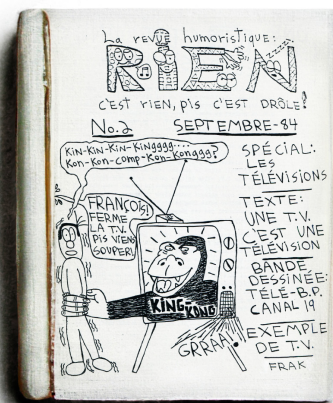 La revue humoristique:
RIEN
C'EST RIEN, PIS C'EST DRÔLE!
No.2 SEPTEMBRE-84
KIN-KIN-KIN-KINgggg....
Kon-Kon-comp-Kon-Konggg?
FRANÇOIS!
FERME
LA T.V.
PIS VIENS
SOUPER!
KING-
KONG
GRRAA
SPÉCIAL:
LES
TÉLÉVISIONS
TEXTE:
UNE T.V.
C'EST UNE
TÉLÉVISION
BANDE
DESSINÉE:
TÉLÉ-B.P.
CANAL 19
EXEMPLE
DE T.V.
FRAK